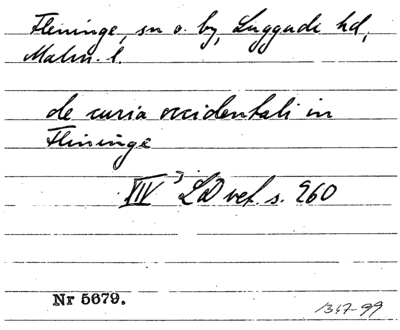 Fleninge, sn o. by, Luggude hd,
Malm. l.
de curia occidentali in
Flininge
XIV 3 LD vet. s. 260
Nr 5679.
1347-99